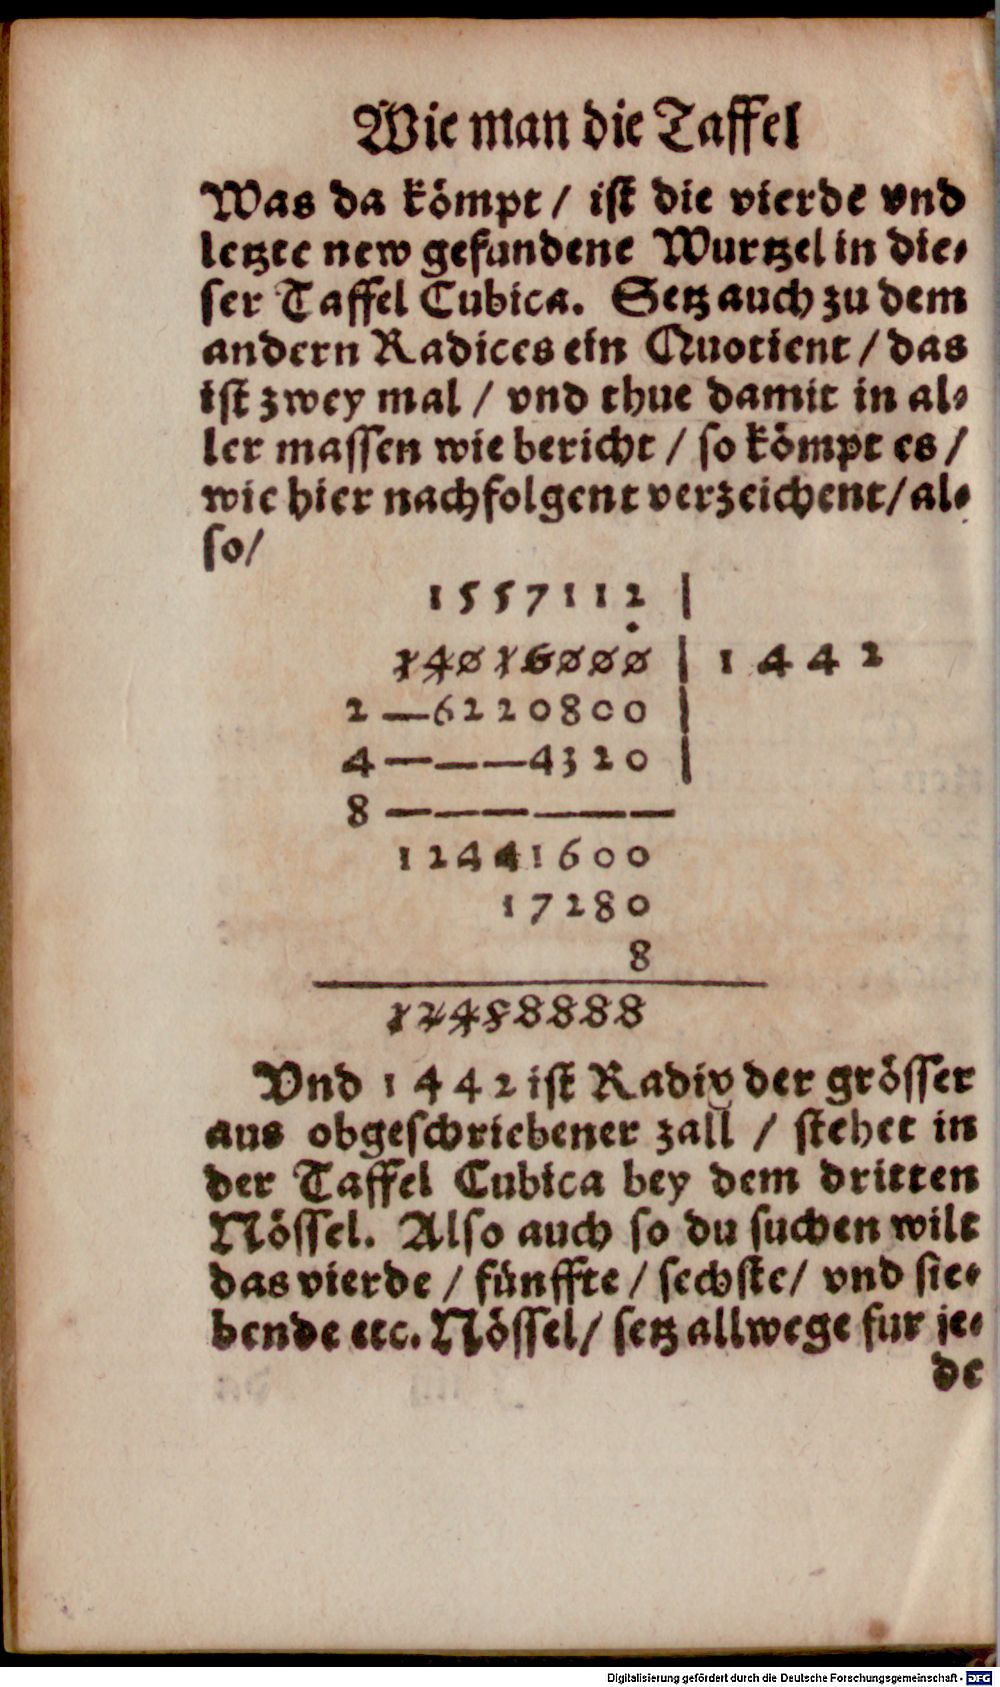 Wie man die Taffel
Was da kömpt / ist die vierde vnd
letzte new gefundene Wurtzel in die-
ser Taffel Cubica. Setz auch zu dem
andern Radices ein Quotient / das
ist zwey mal / vnd thue damit in al-
ler massen wie bericht / so kömpt es /
wie hier nachfolgent verzeichent / al-
so /
1557112 |
14016000 | 1442
2 — 6220800 |
4 — — — 4320 |
8 — — — — — —
12441600
17280
8
12458888
Vnd 1442 ist Radix der grösser
aus obgeschriebener zall / stehet in
der Taffel Cubica bey dem dritten
Nössel. Also auch so du suchen wilt
das vierde / fünffte / sechste / vnd sie-
bende etc. Nössel / setz allwege fur je-
de
Digitalisierung gefördert durch die Deutsche Forschungsgemeinschaft - DFG